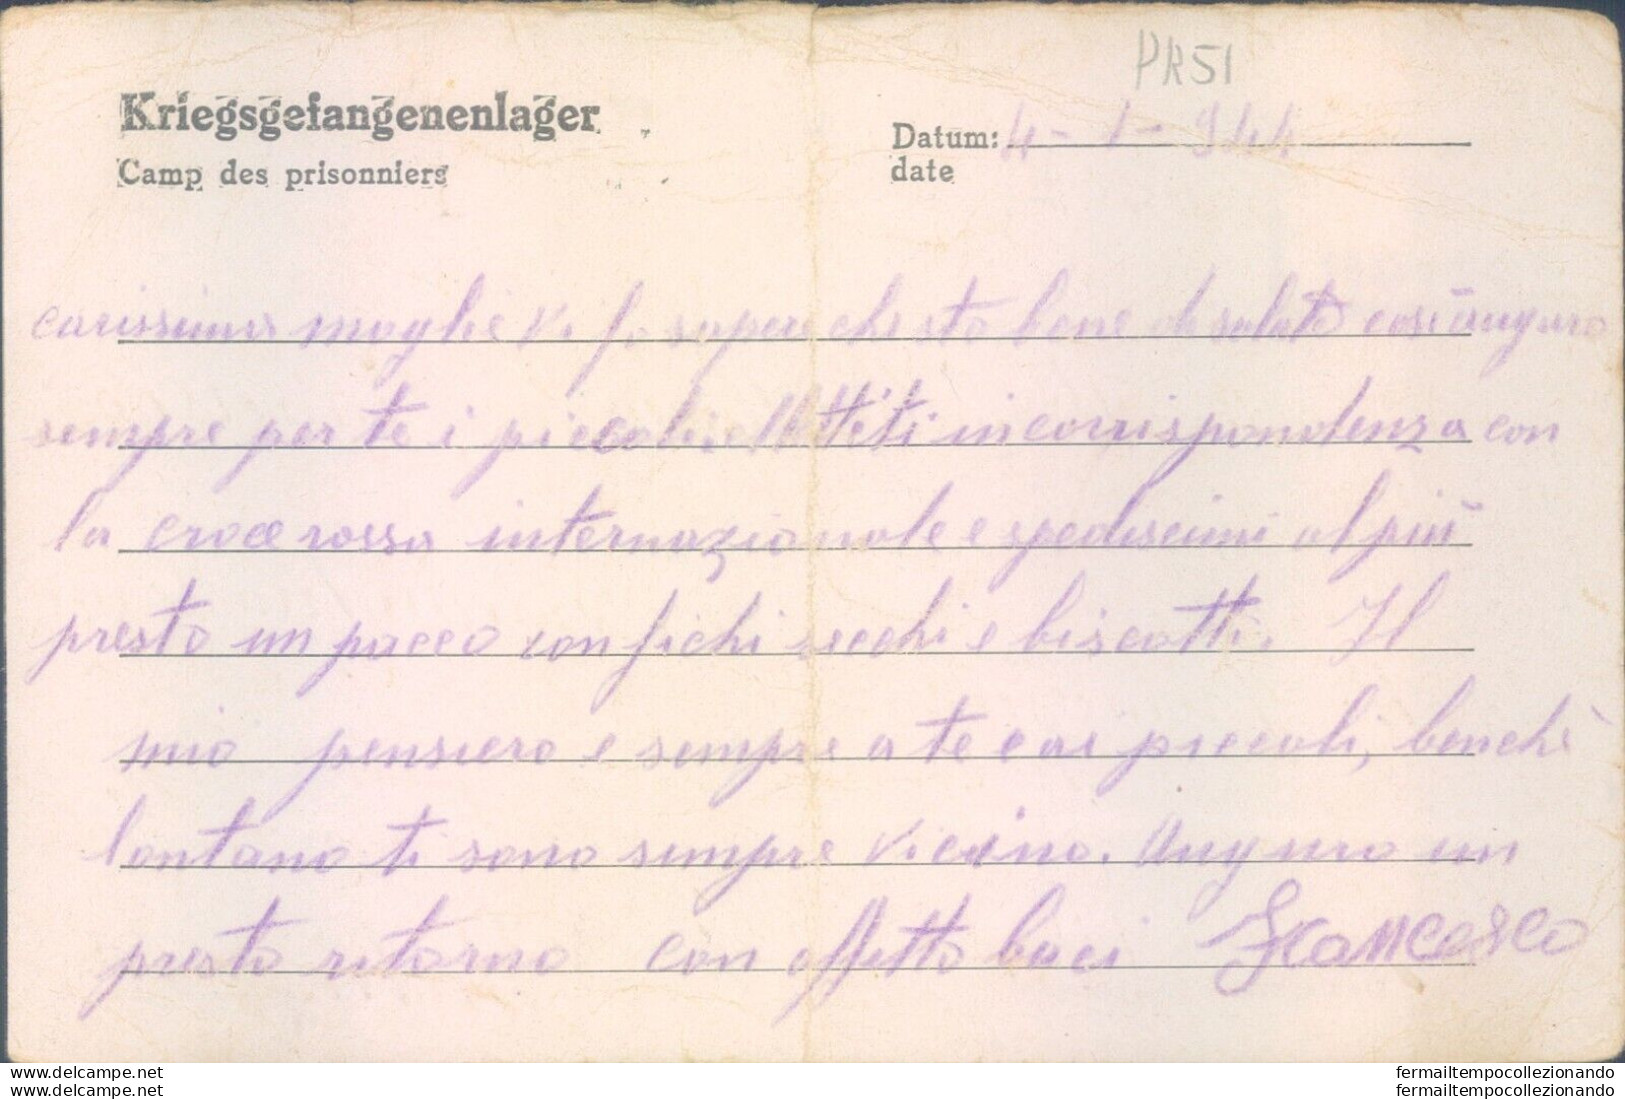 PR51
Kriegsgefangenenlager
Datum: 4-1-944
Camp des prisonniers
date
carissima moglie vi fo sapere che sto bene di salute così auguro
sempre per te i piccoli. Mettiti in corrispondenza con
la croce rossa internazionale e spediscimi al più
presto un pacco con fichi secchi e biscotti. Il
mio pensiero e sempre a te e ai piccoli, benchè
lontano ti sono sempre vicino. Auguro un
presto ritorno con affetto baci Francesco
www.delcampe.net
www.delcampe.net
fermailtempocollezionando
fermailtempocollezionando